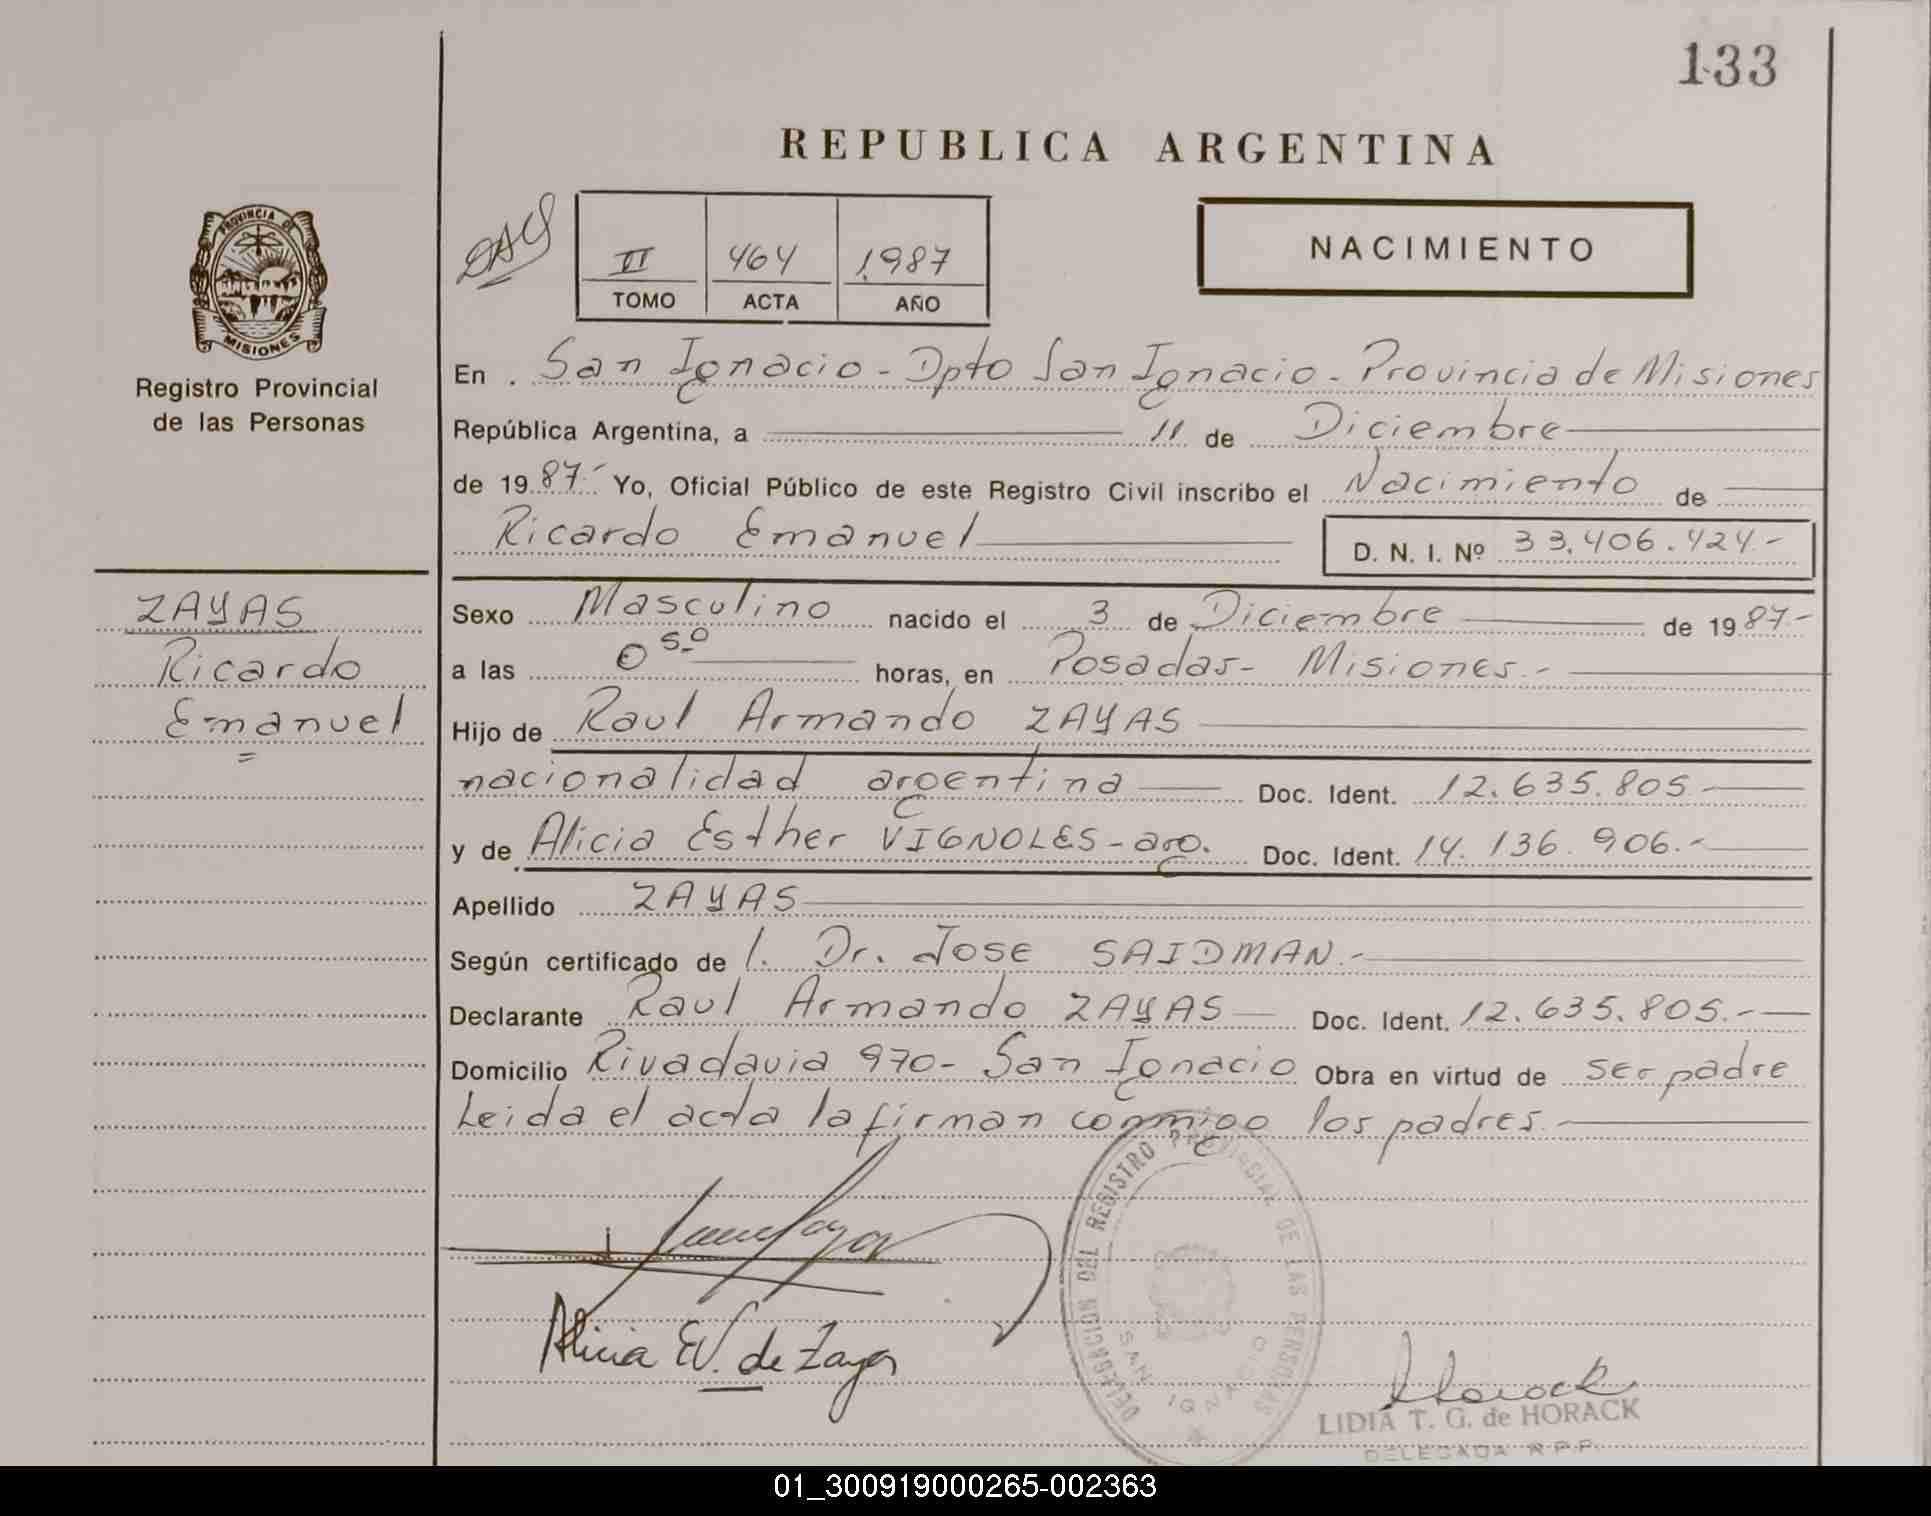 133
REPUBLICA ARGENTINA
II 464 1.987
TOMO ACTA AÑO
NACIMIENTO
PROVINCIA DE
MISIONES
Registro Provincial
de las Personas
En . San Ignacio - Dpto San Ignacio - Provincia de Misiones
República Argentina, a 11 de Diciembre
de 19 87.- Yo, Oficial Público de este Registro Civil inscribo el Nacimiento de
Ricardo Emanuel D. N. I. Nº 33.406.424.-
ZAYAS
Ricardo
Emanuel
Sexo Masculino nacido el 3 de Diciembre de 19 87.-
a las 0 50 horas, en Posadas - Misiones.-
Hijo de Raul Armando ZAYAS
nacionalidad argentina Doc. Ident. 12.635.805.-
y de Alicia Esther VIGNOLES - arg. Doc. Ident. 14.136.906.-
Apellido ZAYAS
Según certificado de l. Dr. Jose SAIDMAN.-
Declarante Raul Armando ZAYAS Doc. Ident. 12.635.805.-
Domicilio Rivadavia 970- San Ignacio Obra en virtud de ser padre
Leida el acta la firman conmigo los padres.
DELEGACION DEL REGISTRO PROVINCIAL DE LAS PERSONAS
SAN IGNACIO
Alicia E V. de Zayas
Horack
LIDIA T. G. de HORACK
DELEGADA R.P.P.
01_300919000265-002363